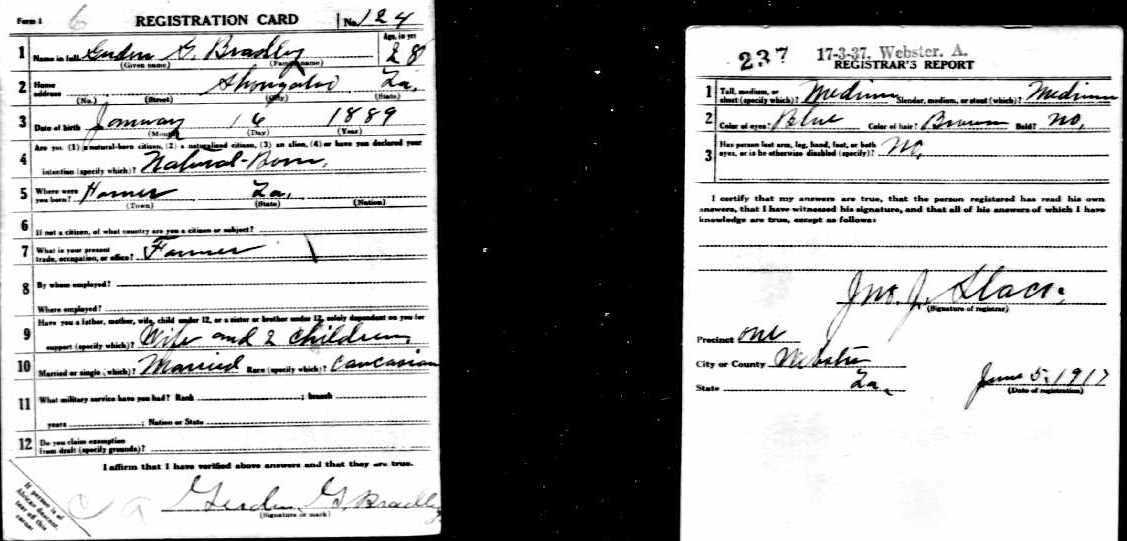 Form 1 6 REGISTRATION CARD No. 124
1 Name in full. Gurden G. Bradley Age, in yrs 28
(Given name) (Family name)
2 Home address Shongaloo La.
(No.) (Street) (City) (State)
3 Date of birth January 16 1889
(Month) (Day) (Year)
4 Are you (1) a natural-born citizen, (2) a naturalized citizen, (3) an alien, (4) or have you declared your
intention (specify which)? Natural-Born.
5 Where were you born? Homer La.
(Town) (State) (Nation)
6 If not a citizen, of what country are you a citizen or subject?
7 What is your present trade, occupation, or office? Farmer
8 By whom employed?
Where employed?
9 Have you a father, mother, wife, child under 12, or a sister or brother under 12, solely dependent on you for
support (specify which)? Wife and 2 children
10 Married or single (which)? Married Race (specify which)? Caucasian
11 What military service have you had? Rank ; branch
years ; Nation or State
12 Do you claim exemption from draft (specify grounds)?
I affirm that I have verified above answers and that they are true.
Gurden G. Bradley
(Signature or mark)
If person is of
African descent,
tear off this
corner
237 17-3-37. Webster. A.
REGISTRAR'S REPORT
1 Tall, medium, or short (specify which)? Medium Slender, medium, or stout (which)? Medium
2 Color of eyes? Blue Color of hair? Brown Bald? No.
3 Has person lost arm, leg, hand, foot, or both
eyes, or is he otherwise disabled (specify)? No.
I certify that my answers are true, that the person registered has read his own
answers, that I have witnessed his signature, and that all of his answers of which I have
knowledge are true, except as follows:
Jno. J. Slack
(Signature of registrar)
Precinct one
City or County Webster
State La. June 5. 1917
(Date of registration)